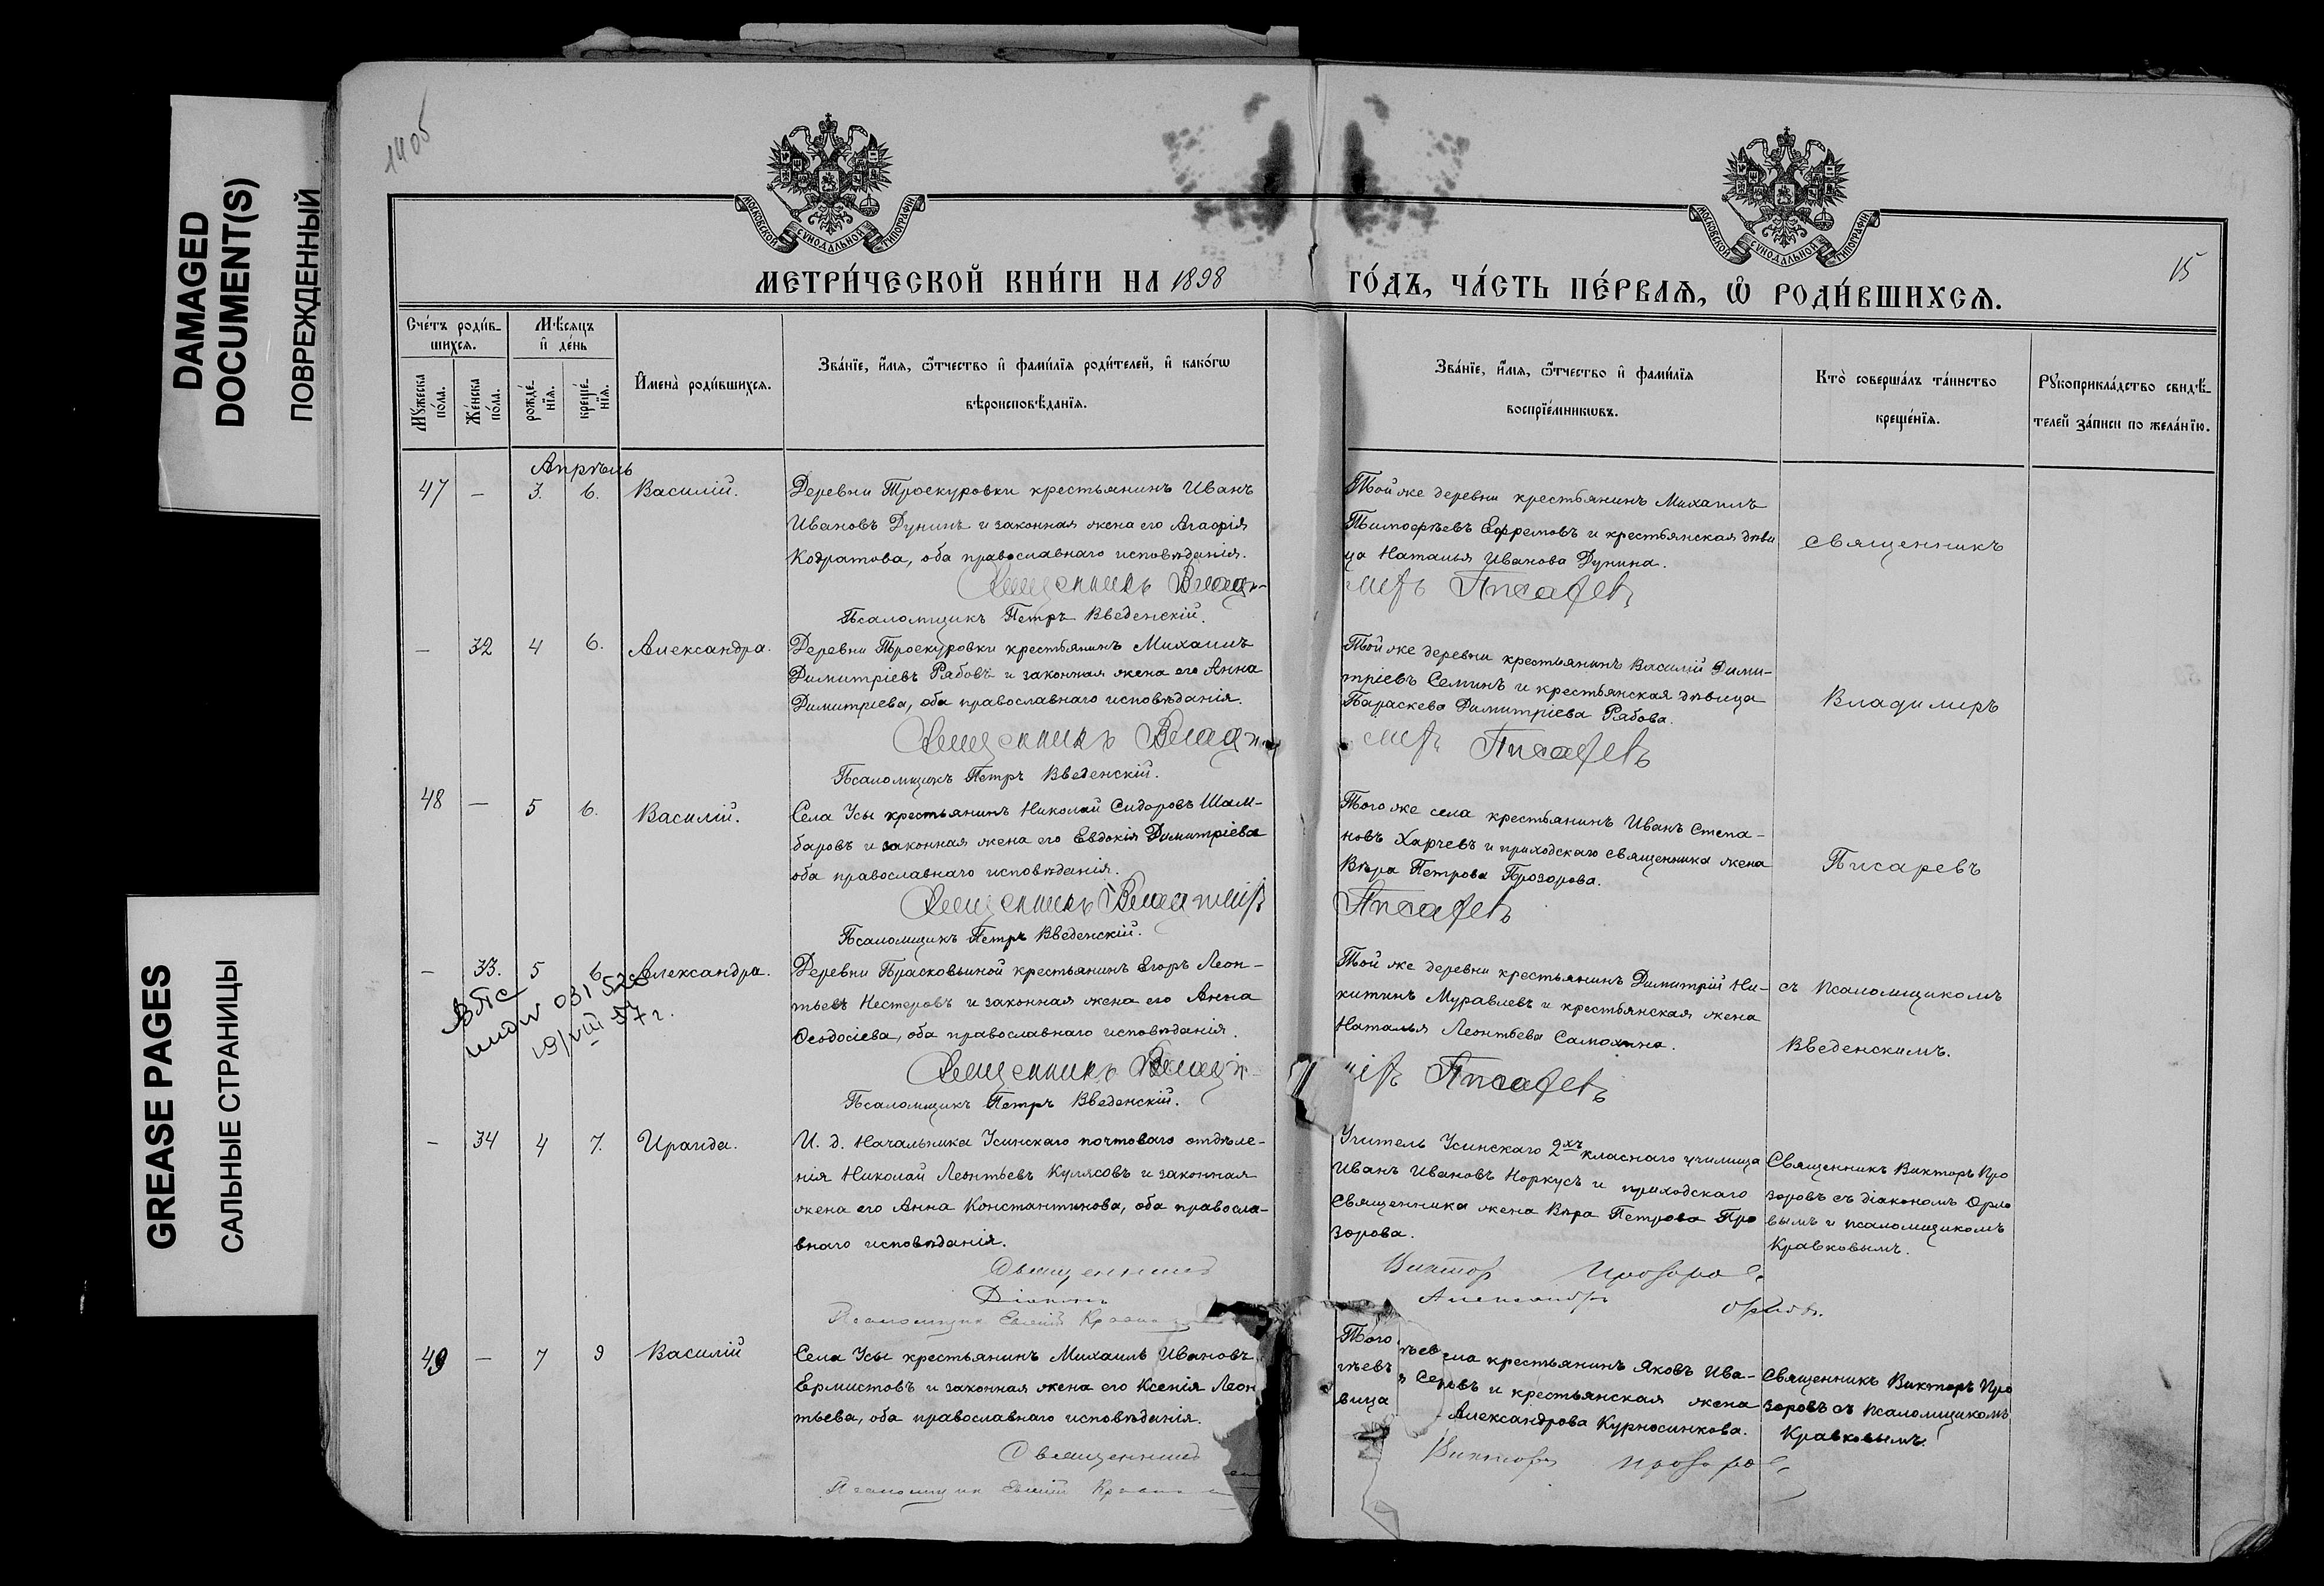 DAMAGED
DOCUMENT(S)
ПОВРЕЖДЕННЫЙ
GREASE PAGES
САЛЬНЫЕ СТРАНИЦЫ
1405
МОСКОВСКОЙ СѴНОДАЛЬНОЙ ТИПОГРАФІИ
МОСКОВСКОЙ СѴНОДАЛЬНОЙ ТИПОГРАФІИ
МЕТРИ́ЧЕСКОЙ КНИ́ГИ НА 1898 ГО́ДЪ, ЧА́СТЬ ПЕ́РВАѦ, Ѽ РОДИ́ВШИХСѦ.
15
Сче́тъ роди́в-
шихсѧ.
Мѣ́сѧцъ
и҆ де́нь
Мꙋжеска
по́ла.
Же́нска
по́ла.
рожде́-
нїѧ.
креще́-
нїѧ.
И҆мена̀ роди́вшихсѧ.
Зва́нїе, и҆́мѧ, ѻ҆́тчество и҆ фами́лїѧ роди́телей, и҆ како́гѡ
вѣроисповѣ́данїѧ.
Зва́нїе, и҆́мѧ, ѻ҆́тчество и҆ фами́лїѧ
воспрїе́мникѡвъ.
Кто̀ соверша́лъ та́инство
креще́нїѧ.
Рꙋкоприкла́дство свидѣ́-
телей за́писи по жела́нїю.
Апрѣль
47 — 3. 6. Василій.
Деревни Троекуровки крестьянинъ Иванъ
Ивановъ Дунинъ и законная жена его Агаѳрія
Кодратова, оба православнаго исповѣданія.
Священникъ Влади-
Псаломщикъ Петръ Введенскій.
Той же деревни крестьянинъ Михаилъ
Тимоѳѣевъ Ефремовъ и крестьянская дѣви
ца Наталья Иванова Дунина.
миръ Писаревъ
священникъ
— 32 4 6. Александра.
Деревни Троекуровки крестьянинъ Михаилъ
Димитріевъ Рябовъ и законная жена его Анна
Димитріева, оба православнаго исповѣданія.
Священникъ Влади-
Псаломщикъ Петръ Введенскій.
Той же деревни крестьянинъ Василій Дими-
тріевъ Семинъ и крестьянская дѣвица
Параскева Димитріева Рябова.
миръ Писаревъ
Владимиръ
48 — 5 6. Василій.
Села Усы крестьянинъ Николай Сидоровъ Шам-
баровъ и законная жена его Евдокія Димитріева
оба православнаго исповѣданія.
Священникъ Владимиръ
Псаломщикъ Петръ Введенскій.
Того же села крестьянинъ Иванъ Степа-
новъ Харчевъ и приходскаго священника жена
Вѣра Петрова Прозорова.
Писаревъ
Писаревъ
— 33. 5 6 Александра.
19/VIII 57 г.
Деревни Прасковьиной крестьянинъ Егоръ Леон-
тьевъ Нестеровъ и законная жена его Анна
Ѳеодосіева, оба православнаго исповѣданія.
Священникъ Влади-
Псаломщикъ Петръ Введенскій.
Той же деревни крестьянинъ Димитрій Ни-
китинъ Муравлевъ и крестьянская жена
Наталья Леонтьева Самохина.
міръ Писаревъ
съ псаломщикомъ
Введенскимъ.
— 34 4 7. Ираида.
И. д. Начальника Усинскаго почтоваго отдѣле-
нія Николай Леонтьевъ Кулясовъ и законная
жена его Анна Константинова, оба правосла-
внаго исповѣданія.
Священникъ
Діаконъ
Псаломщик Евгеній
Учитель Усинскаго 2хъ класнаго училища
Иванъ Ивановъ Норкусъ и приходскаго
священника жена Вѣра Петрова Про
зорова.
Викторъ Прозоровъ
Александръ Орловъ.
Священникъ Викторъ Про
зоровъ съ діакономъ Орло
вымъ и псаломщикомъ
Кравковымъ.
49 — 7 9 Василій
Села Усы крестьянинъ Михаилъ Ивановъ
Ермистовъ и законная жена его Ксенія Леон
тьева, оба православнаго исповѣданія.
Священникъ
Псаломщик Евгеній
Того ела крестьянинъ Яковъ Ива-
и крестьянская жена
вица Александрова Курносинкова.
Викторъ Прозоровъ
Священникъ Викторъ Про
зоровъ съ псаломщикомъ
Кравковымъ.